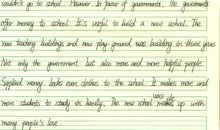 wouldn't go to school. However In favour of governments. The governments
offer money to school. It's useful to build a new school. The
new teaching buildings and new play ground was building in three years
Not only the government but also more and more helpful people.
Supplied money books even clothes to the school. It makes more and
more students to study in handly. The new school makes up with
many people's love.